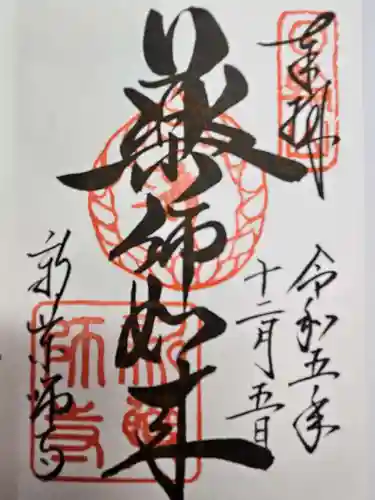 奉拝
令和五年
十二月五日
薬師如来
新薬師寺
新薬師寺